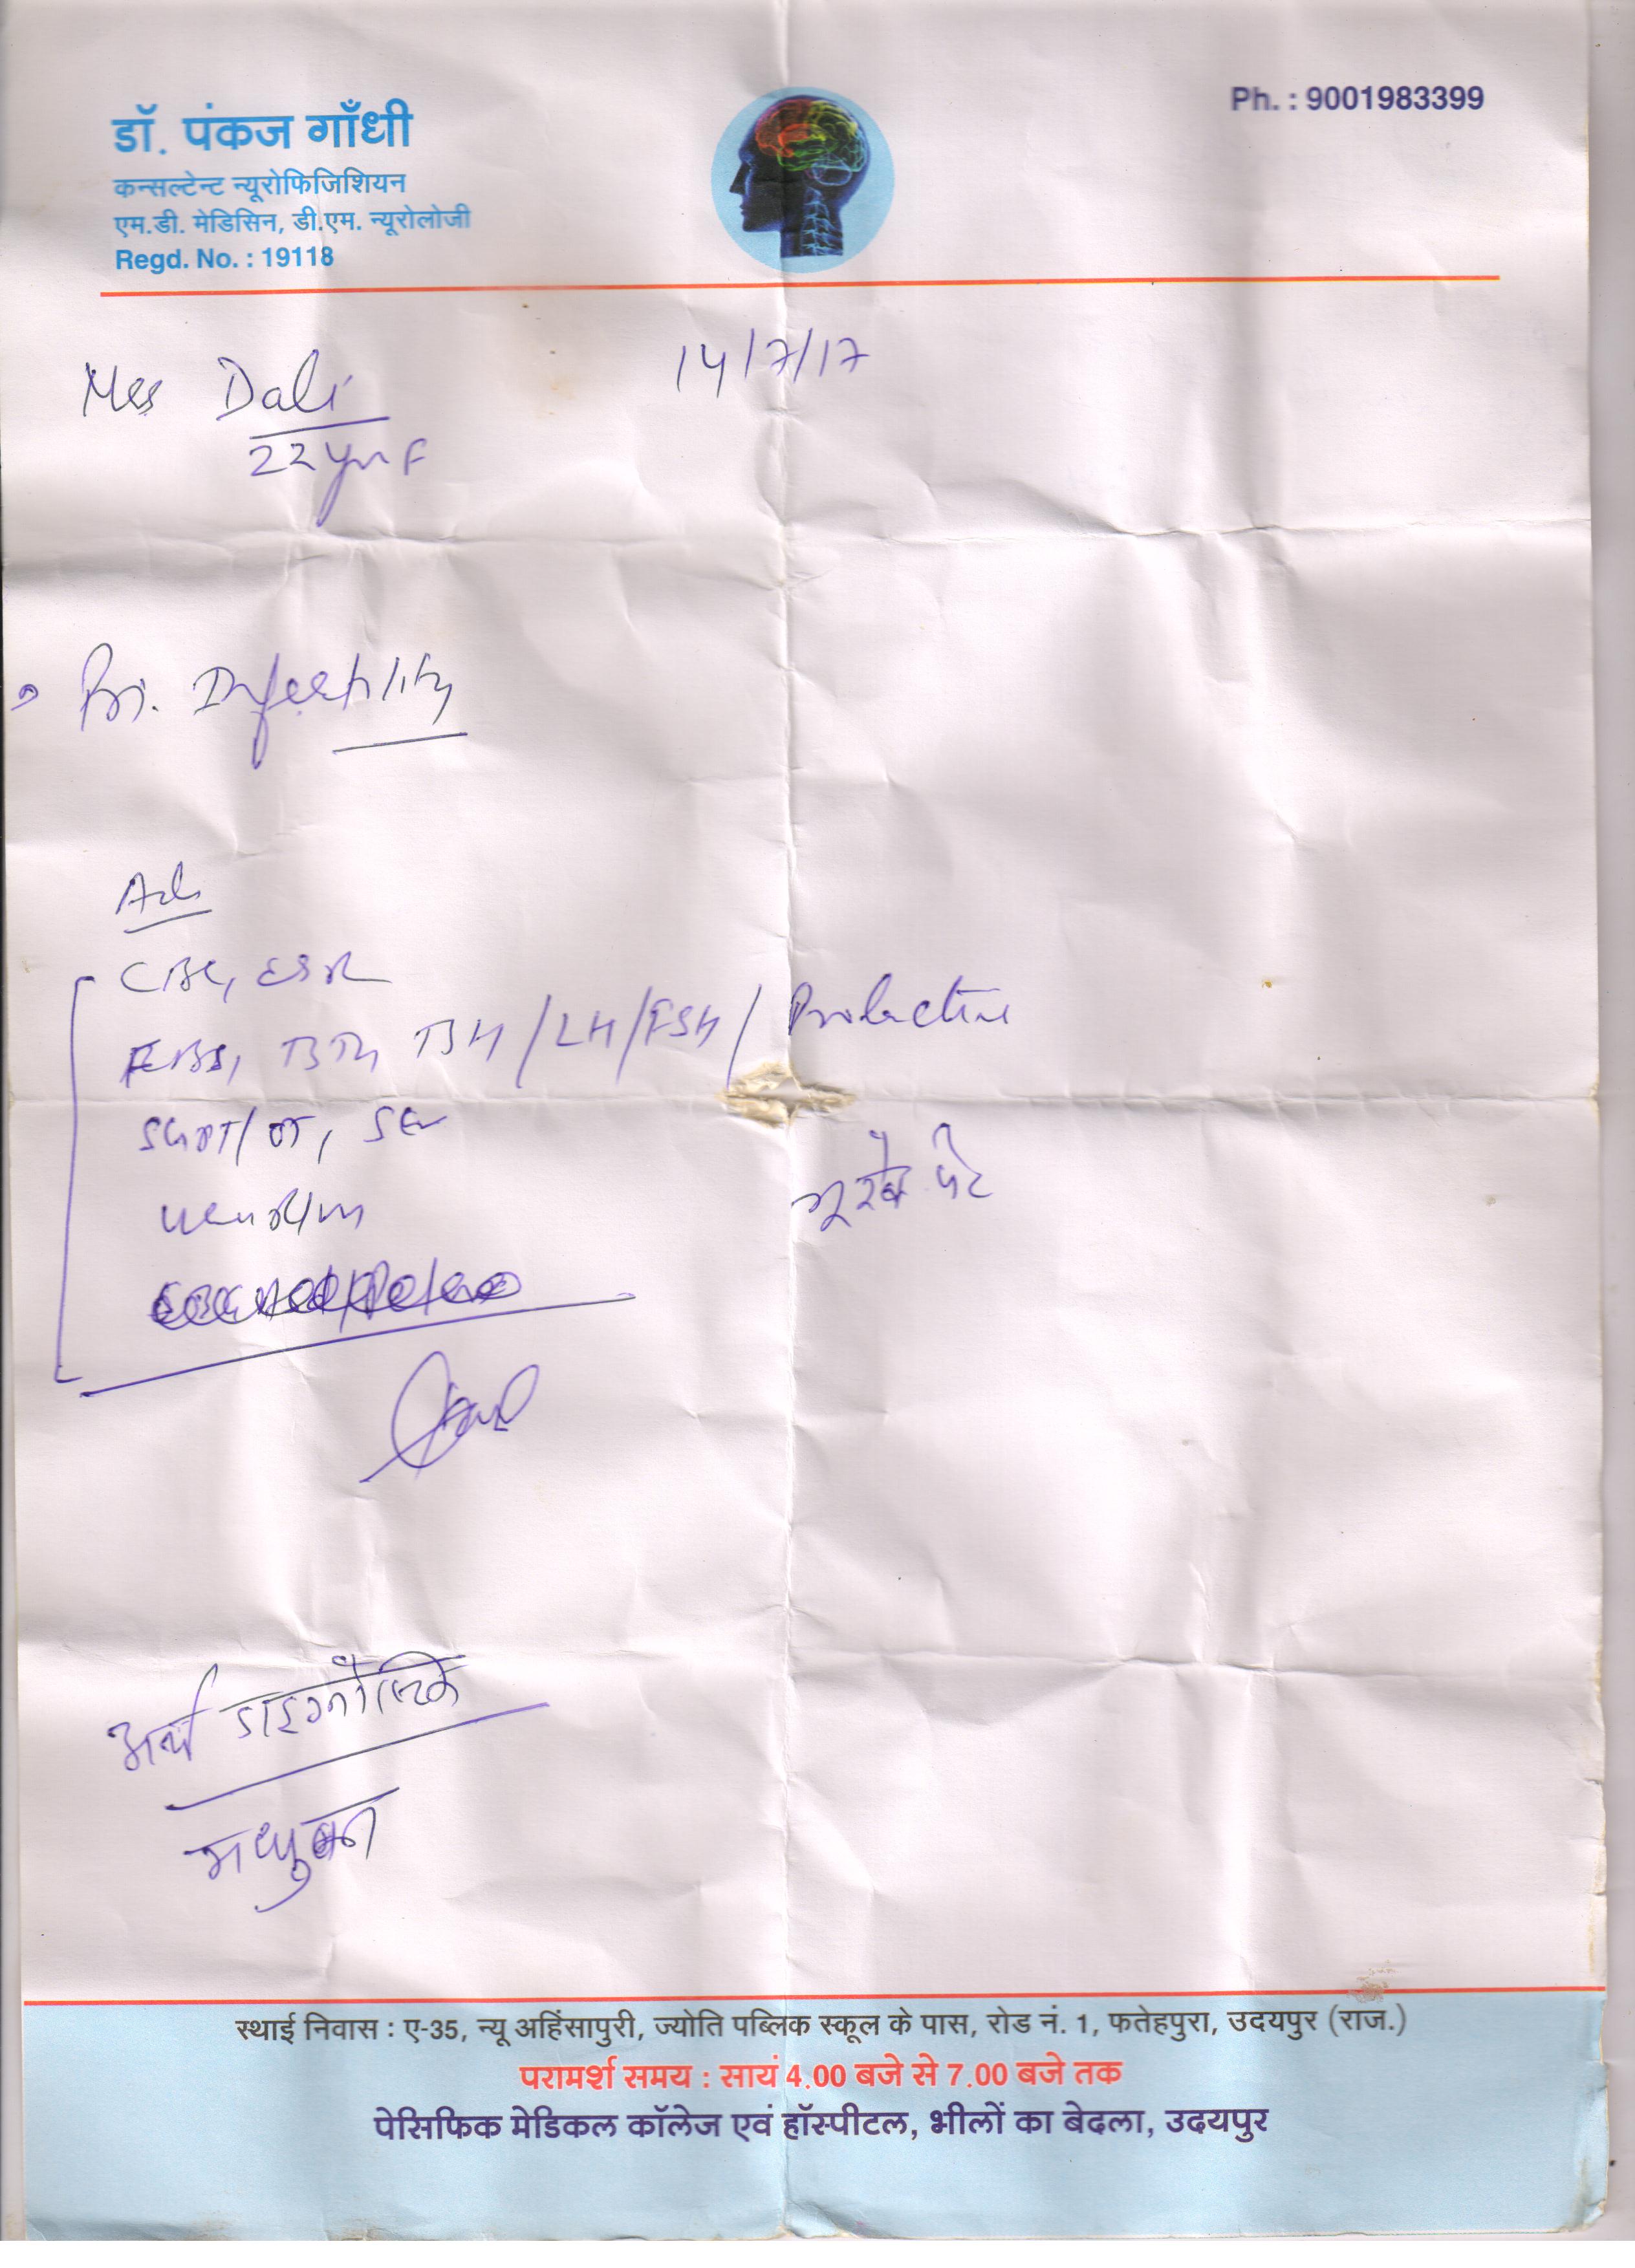 Ph. : 9001983399
डॉ. पंकज गाँधी
कन्सल्टेन्ट न्यूरोफिजिशियन
एम.डी. मेडिसिन, डी.एम. न्यूरोलोजी
Regd. No. : 19118
14/7/17
Mrs Dali
22 yrs F
Pri. Infertility
Adv
CBC, ESR
TSH / LH / FSH / Prolactine
SGOT/PT, SCr
भूखे पेट
अर्थ डाइग्नोस्टिक
मधुबन
स्थाई निवास : ए-35, न्यू अहिंसापुरी, ज्योति पब्लिक स्कूल के पास, रोड नं. 1, फतेहपुरा, उदयपुर (राज.)
परामर्श समय : सायं 4.00 बजे से 7.00 बजे तक
पेसिफिक मेडिकल कॉलेज एवं हॉस्पीटल, भीलों का बेदला, उदयपुर